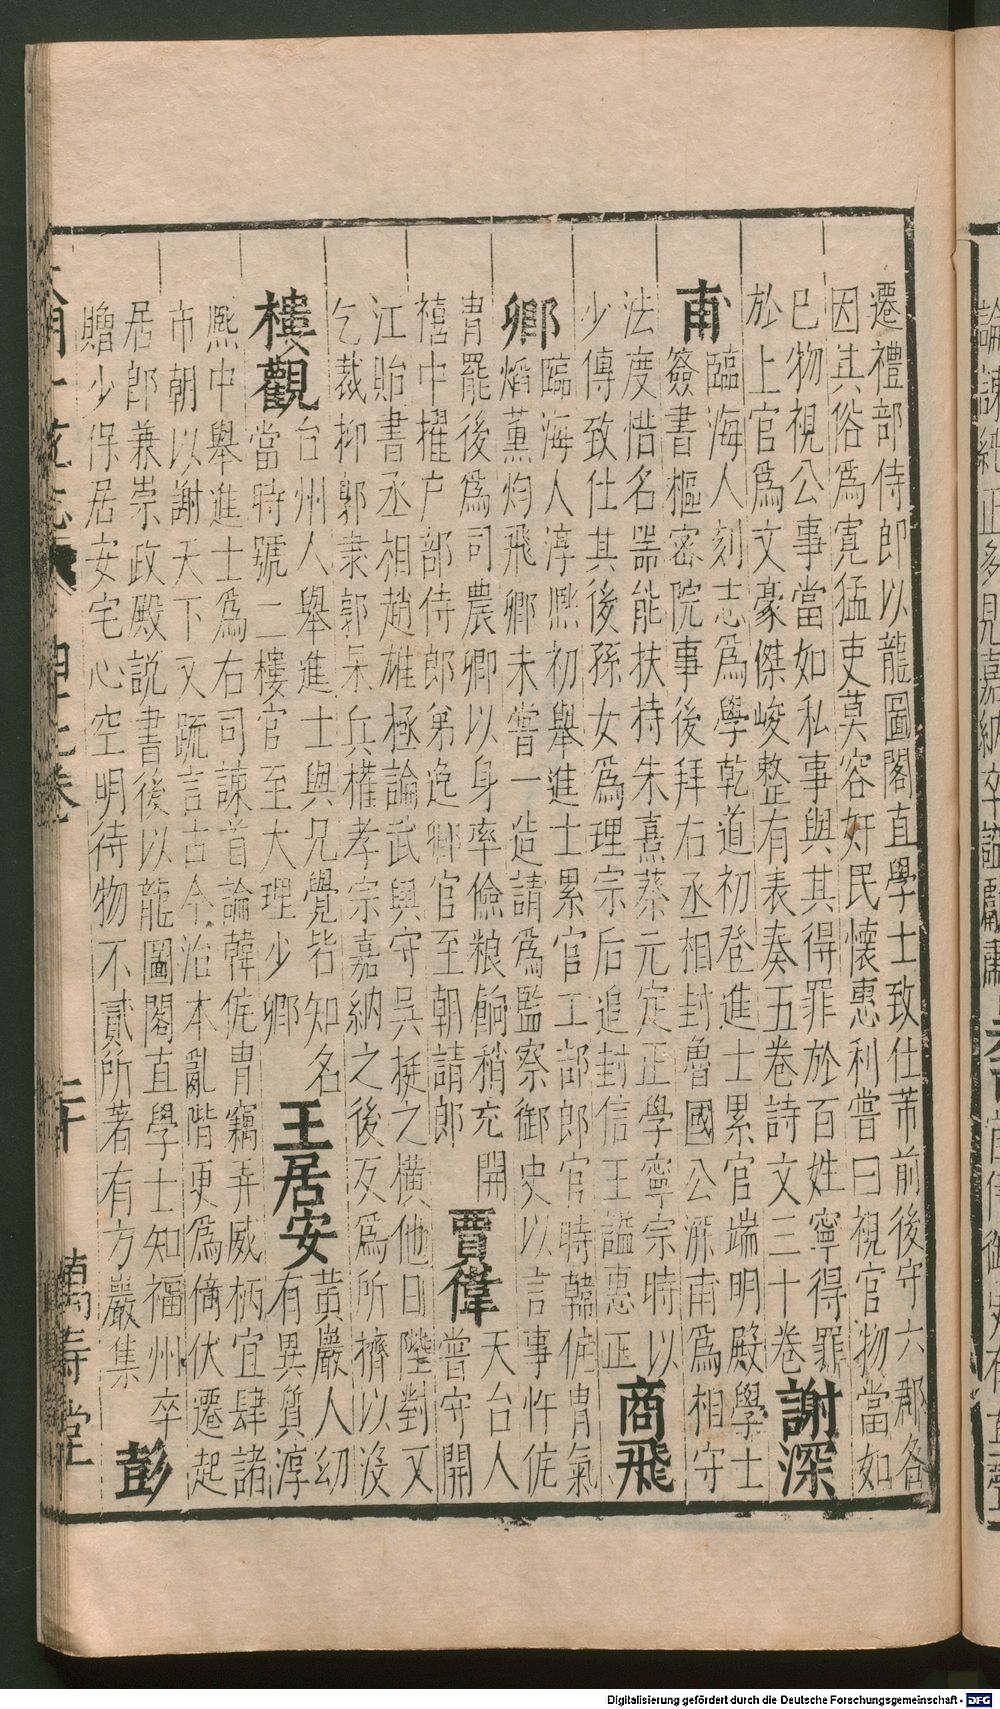 論諫純正多見嘉納卒諡獻肅
遷禮部侍郎以龍圖閣直學士致仕芾前後守六郡各
因其俗為寬猛吏莫容奸民懷惠利嘗曰視官物當如
巳物視公事當如私事與其得罪於百姓寧得罪
於上官為文豪傑峻整有表奏五卷詩文三十卷
謝深
甫
臨海人刻志為學乾道初登進士累官端明殿學士
簽書樞密院事後拜右丞相封魯國公深甫為相守
法度惜名器能扶持朱熹蔡元定正學寧宗時以
少傅致仕其後孫女為理宗后追封信王謚惠正
商飛
卿
臨海人淳熙初舉進士累官工部郎官時韓侂胄氣
焰薰灼飛卿未嘗一造請為監察御史以言事忤侂
胄罷後為司農卿以身率儉粮餉稍充開
禧中擢户部侍郎弟逸卿官至朝請郎
賈偉
天台人
嘗守開
江貽書丞相趙雄極論武興守吳挺之橫他日陛對又
乞裁抑郭隶郭杲兵權孝宗嘉納之後反為所擠以沒
樓觀
台州人舉進士與兄覺皆知名
當時號二樓官至大理少卿
王居安
黃巖人幼
有異質淳
熈中舉進士為右司諫首論韓侂胄竊弄威柄宜肆諸
市朝以謝天下又疏言古今治本亂階更為倚伏遷起
居郎兼崇政殿說書後以龍圖閣直學士知福州卒
贈少保居安宅心空明待物不貳所著有方巖集
彭
萬壽堂
Digitalisierung gefördert durch die Deutsche Forschungsgemeinschaft - DFG